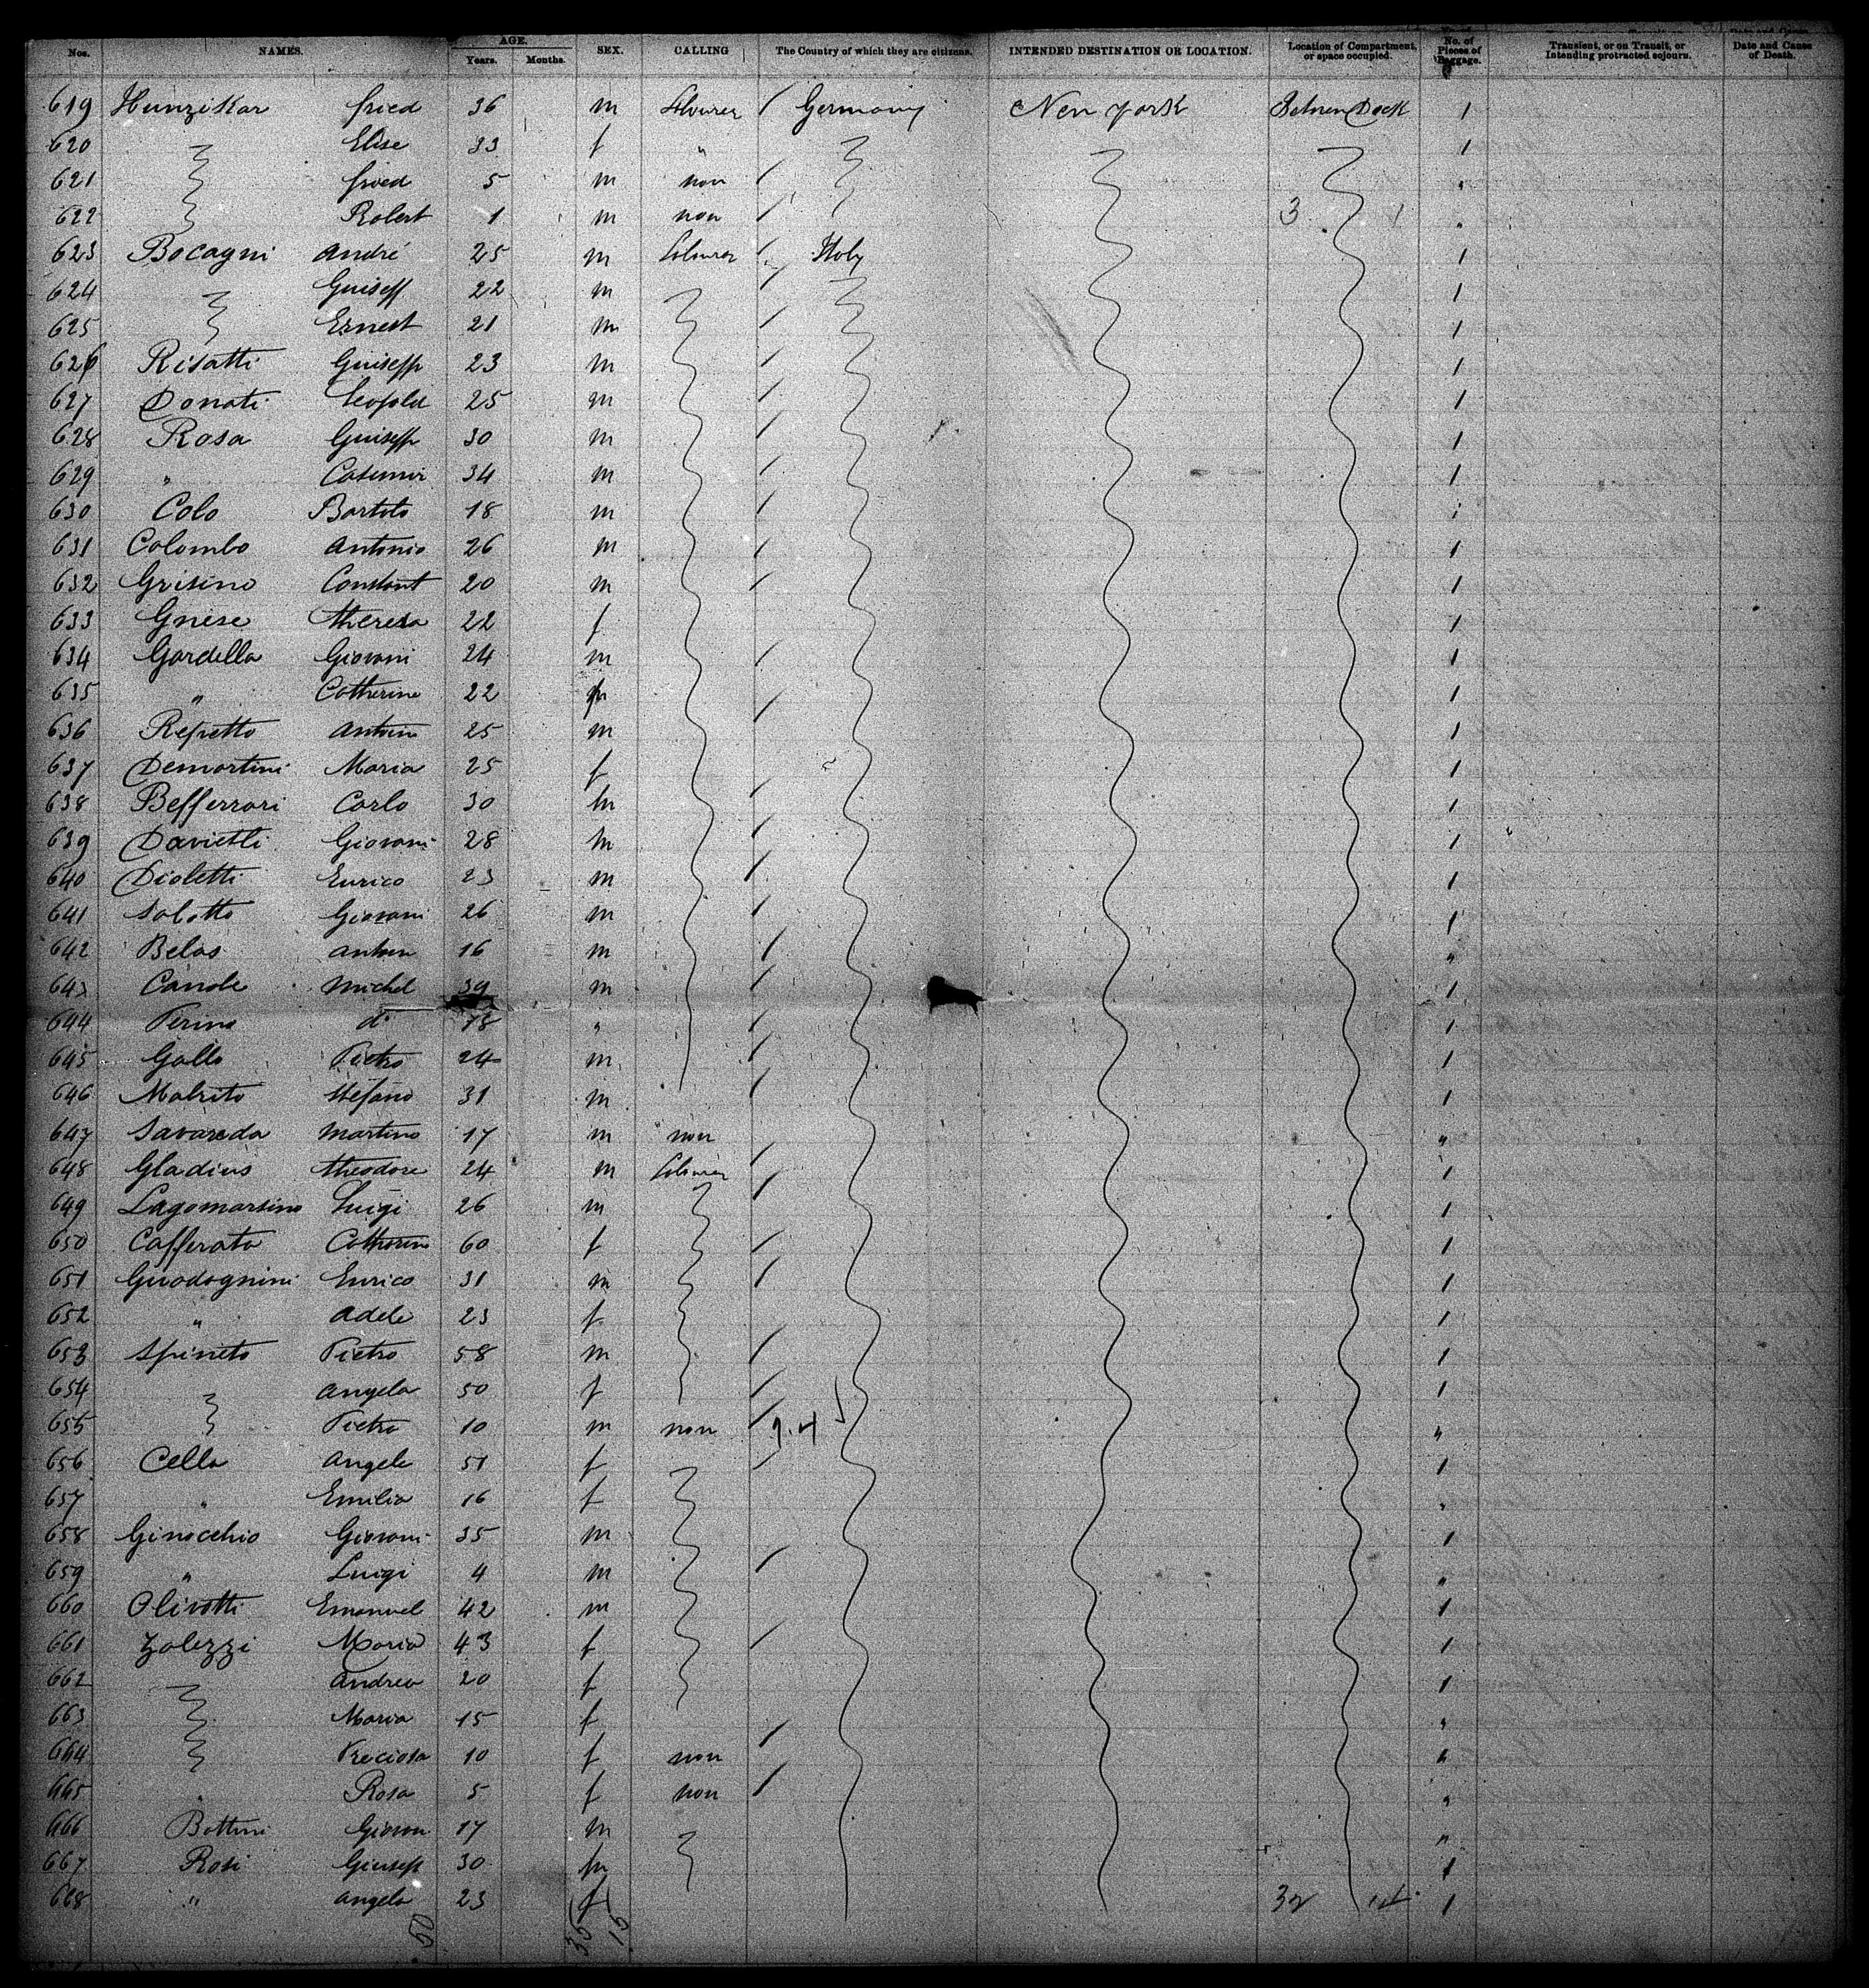 Nos. NAMES. AGE. Years. Months. SEX. CALLING The Country of which they are citizens. INTENDED DESTINATION OR LOCATION. Location of Compartment, or space occupied. No. of Pieces of Baggage. Transient, or on Transit, or Intending protracted sojourn. Date and Cause of Death.
619 Hunzikar fried 36 m Germany New york Deck 1
620 Elise 33 f " 1
621 fried 5 m non "
622 Robert 1 m non 3 1 "
623 Bocagni André 25 m Labourer Italy 1
624 Guiseff 22 m 1
625 Ernest 21 m 1
626 Risatti Guisepp 23 m 1
627 Donati Leopold 25 m 1
628 Rosa Guisepp 30 m 1
629 " Casimir 34 m 1
630 Colo Bartolo 18 m 1
631 Colombo Antonio 26 m 1
632 Grisino Constant 20 m 1
633 Gnese theresa 22 f 1
634 Gardella Giovani 24 m 1
635 " Catherine 22 f 1
636 Repetto Antoin 25 m 1
637 Demartini Maria 25 f 1
638 Befferrari Carlo 30 m 1
639 Davietti Giovani 28 m 1
640 Dioletti Enrico 23 m 1
641 Salotto Giovani 26 m 1
642 Belas antoin 16 m "
643 Canole Michel 39 m 1
644 Perino do 18 " 1
645 Gallo Pietro 24 m 1
646 Malrito Stefano 31 m 1
647 Savareda Martino 17 m non "
648 Gladius theodore 24 m Labourer 1
649 Lagomarsino Luigi 26 m 1
650 Cafferata Catherine 60 f 1
651 Guodagnini Enrico 31 m 1
652 " adele 23 f 1
653 Spineto Pietro 58 m 1
654 angela 50 f 1
655 Pietro 10 m non "
656 Cella Angele 51 f 1
657 " Emilia 16 f "
658 Ginocchio Giovani 35 m 1
659 " Luigi 4 m "
660 Olivotti Emanuel 42 m 1
661 Zalezzi Maria 43 f 1
662 Andrea 20 f 1
663 Maria 15 f "
664 Preciosa 10 f non "
665 " Rosa 5 f non "
666 Bottini Giovan 17 m "
667 Rosi Giusepp 30 m 1
668 " angela 23 f 1
50 35 15